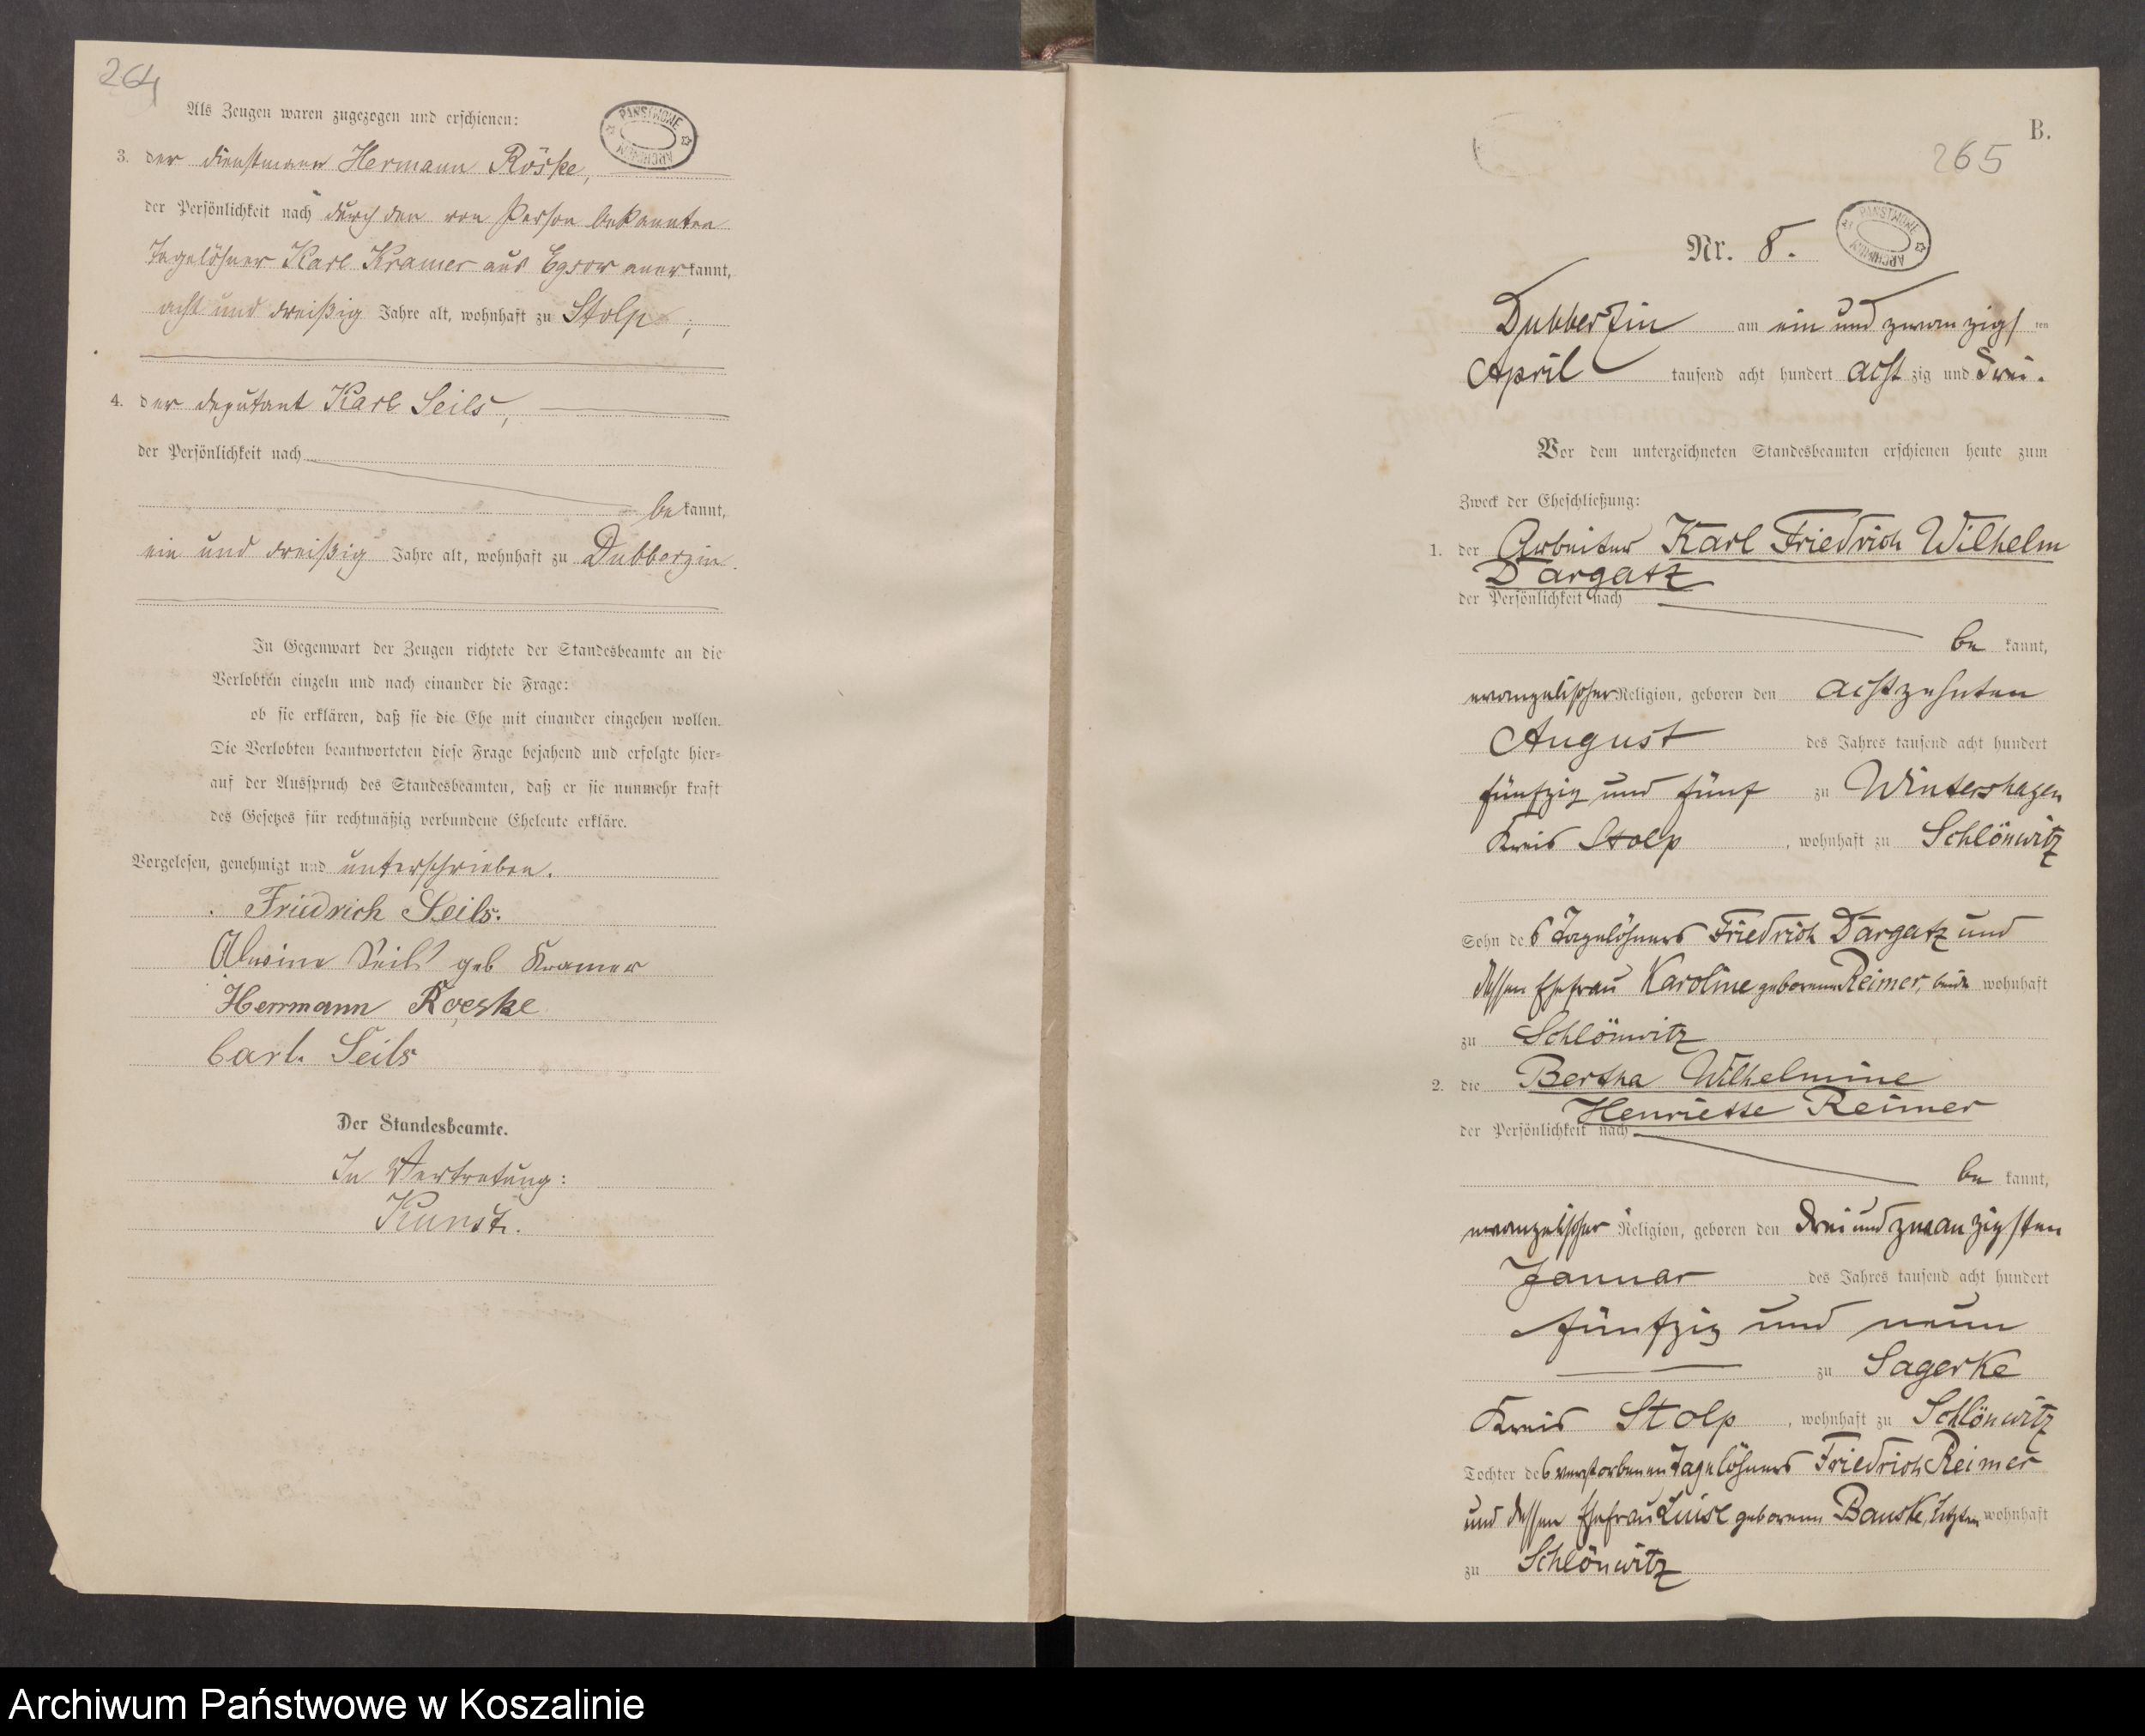 264
Als Zeugen waren zugezogen und erschienen:
PAŃSTWOWE ARCHIWUM
3. der Dienstmann Hermann Röske,
der Persönlichkeit nach durch den von Person bekannten
Tagelöhner Karl Kramer aus Egsow anerkannt,
acht und dreißig Jahre alt, wohnhaft zu Stolp;
4. der Deputant Karl Seils,
der Persönlichkeit nach
bekannt,
ein und dreißig Jahre alt, wohnhaft zu Dubberzin.
In Gegenwart der Zeugen richtete der Standesbeamte an die
Verlobten einzeln und nach einander die Frage:
ob sie erklären, daß sie die Ehe mit einander eingehen wollen.
Die Verlobten beantworteten diese Frage bejahend und erfolgte hier-
auf der Ausspruch des Standesbeamten, daß er sie nunmehr kraft
des Gesetzes für rechtmäßig verbundene Eheleute erkläre.
Vorgelesen, genehmigt und unterschrieben.
Friedrich Seils.
Alwine Seils geb Kramer
Herrmann Roeske
Carl. Seils
Der Standesbeamte.
In Vertretung:
Kunst.
B.
265
PAŃSTWOWE ARCHIWUM
Nr. 8.
Dubberzin am ein und zwanzigsten
April tausend acht hundert achtzig und drei.
Vor dem unterzeichneten Standesbeamten erschienen heute zum
Zweck der Eheschließung:
1. der Arbeiter Karl Friedrich Wilhelm
Dargatz
der Persönlichkeit nach
bekannt,
evangelischer Religion, geboren den achtzehnten
August des Jahres tausend acht hundert
fünfzig und fünf zu Wintershagen
Kreis Stolp, wohnhaft zu Schlönwitz
Sohn des Tagelöhners Friedrich Dargatz und
dessen Ehefrau Karoline geborenen Reimer, beide wohnhaft
zu Schlönwitz
2. die Bertha Wilhelmine
Henriette Reimer
der Persönlichkeit nach
bekannt,
evangelischer Religion, geboren den drei und zwanzigsten
Januar des Jahres tausend acht hundert
fünfzig und neun
zu Sagerke
Kreis Stolp, wohnhaft zu Schlönwitz
Tochter des verstorbenen Tagelöhners Friedrich Reimer
und dessen Ehefrau Luise geborenen Bauske, wohnhaft
zu Schlönwitz
Archiwum Państwowe w Koszalinie